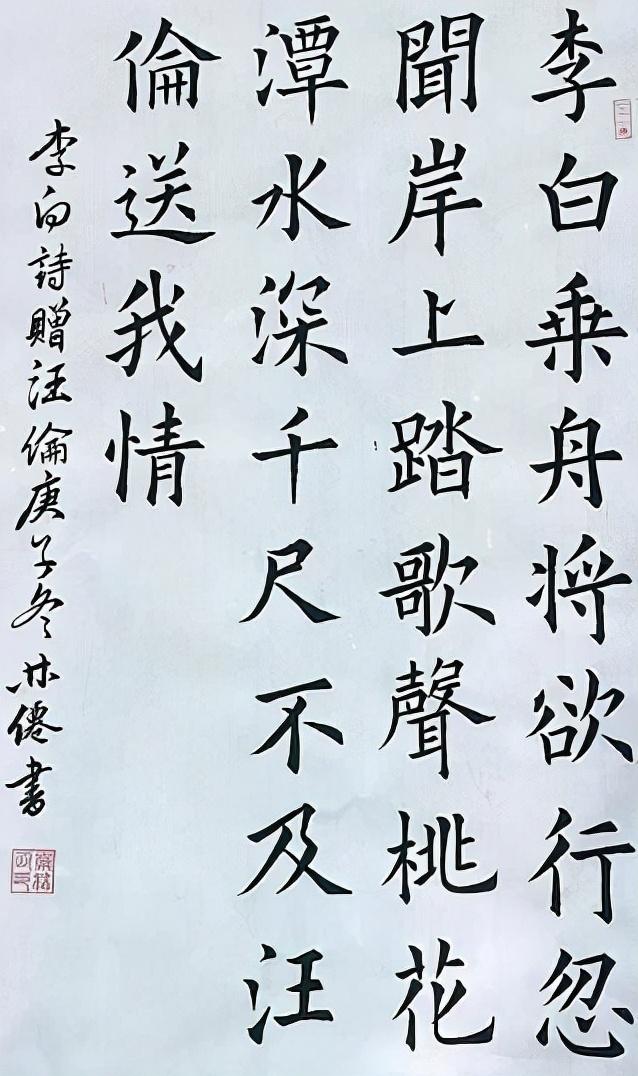 李白乗舟将欲行忽
聞岸上踏歌聲桃花
潭水深千尺不及汪
倫送我情
李白詩贈汪倫庚子冬書